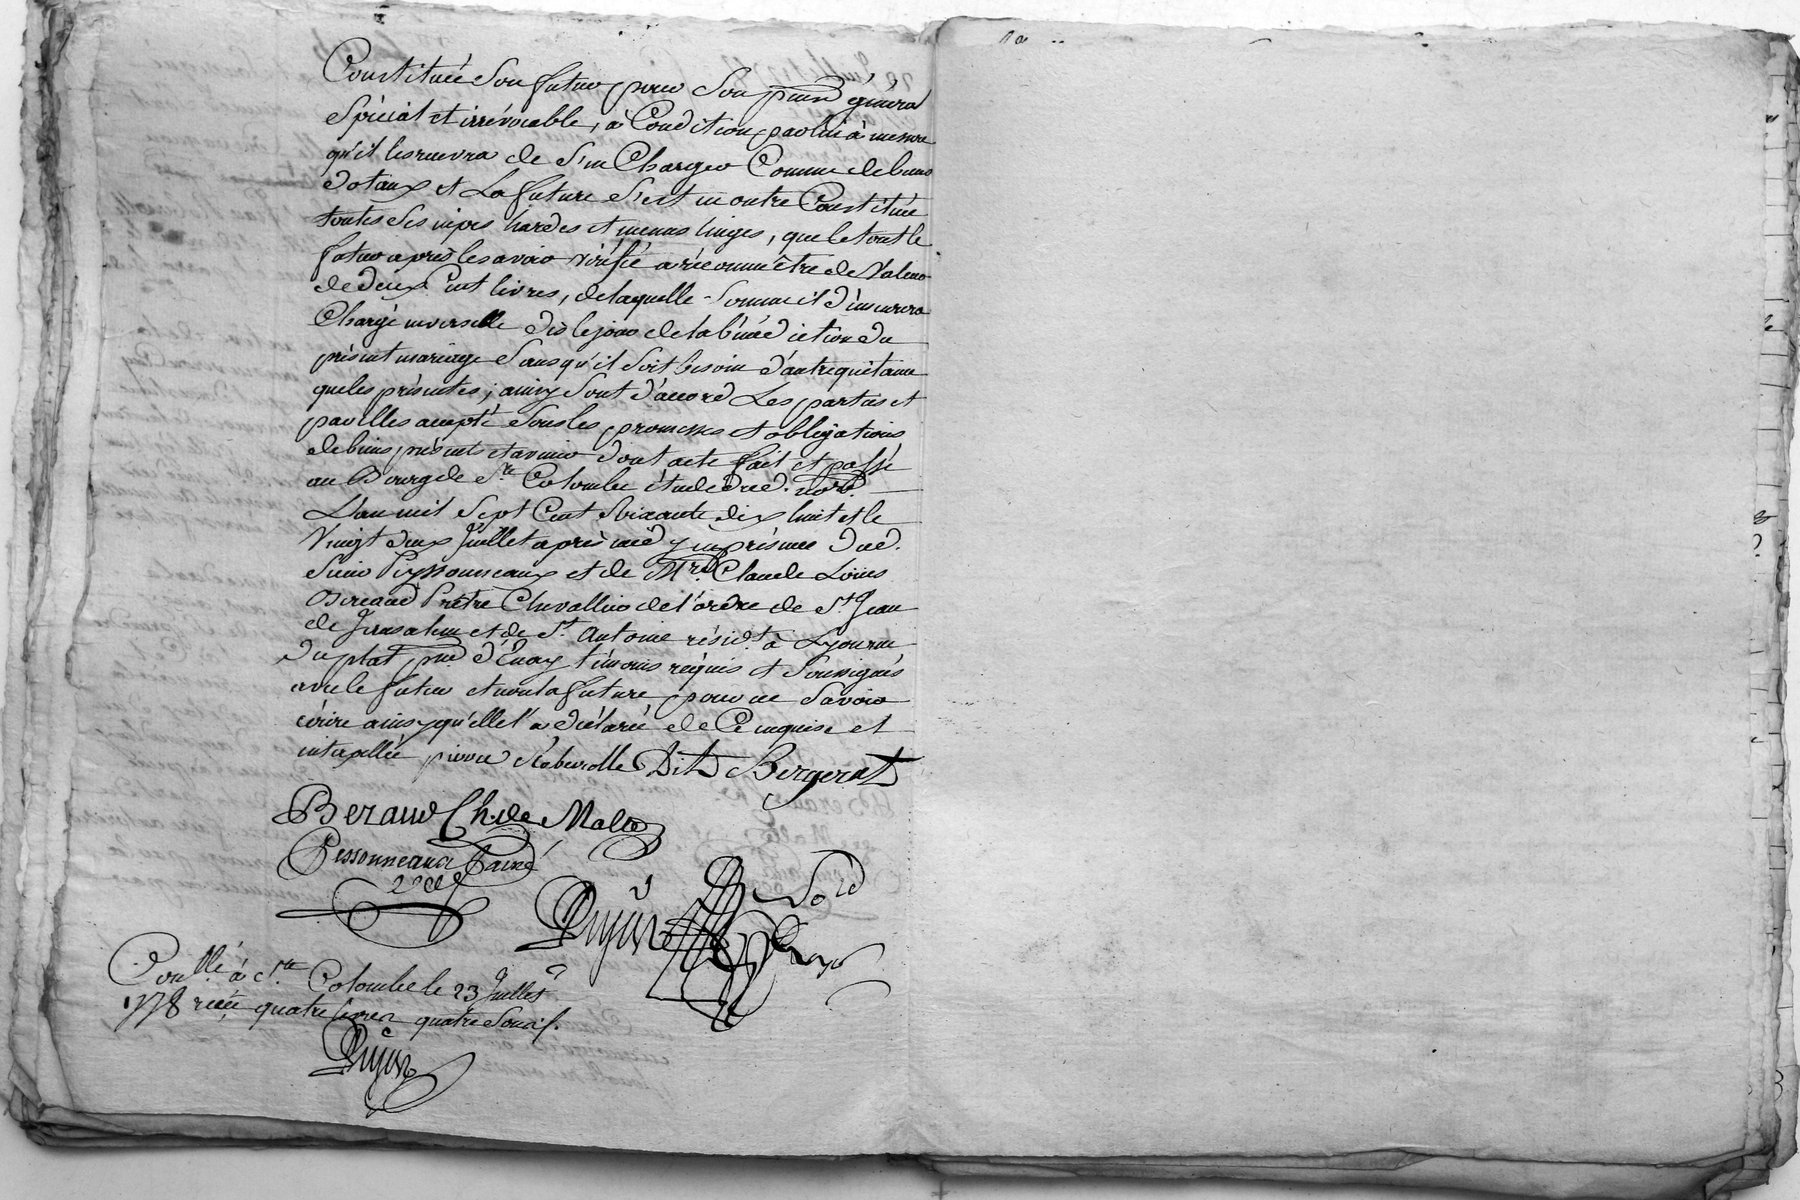 Constituée son futur pour son procr général
Spécial et irrévocable, à Condition par lui à mesure
qu'il les recevra de s'en Charger Comme de biens
dotaux et La future s'est en outre Constituée
toutes ses nipes hardes et menus linges, que le tout le
futur après les avoir vérifié a réconnu être de Valeur
de deux Cent livres, de laquelle Somme il démeurera
Chargé envers elle dès le jour de la bénédiction du
présent mariage Sans qu'il soit besoin d'autre quitance
que les présentes; ainsy Sont d'accord Les parties et
par elles accepté Sous les promesses et obligations
de biens présents et avenir dont acte fait et passé
au Bourg de Ste Colombe étude dud. nore.
L'an mil Sept Cent Soixante dix huit et le
Vingt deux Juillet après midy en présence dud.
Sieur Peyssonneaux et de Mre Claude Loüis
Beraud Prêtre Chevallier de l'ordre de St Jean
de Jérusalem et de St. Antoine résidt. à Lyon rue
du plat psse. d'Enay témoins requis et Soussignés
avec le futur et non la future pour ne Savoir
écrire ainsy qu'elle l'a déclaré de Ce enquise et
interpellée pierre Reberolle Dit Bergerat
Beraud Ch. de Malte
Pessonneaux Lainé
Dujon
Conllé à Ste Colombe le 23 Juillet
1778 reçu quatre livres quatre sous
Dujon